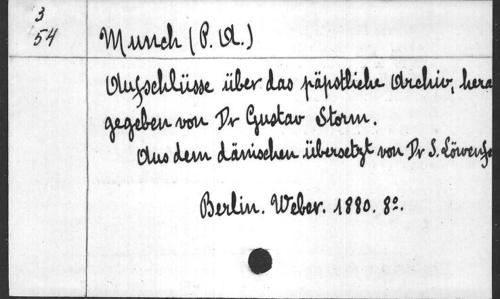 3
54
Munch (P. A.)
Aufschlüsse über das päpstliche Archiv, hera
gegeben von Dr Gustav Storm.
Aus dem dänischen übersetzt von Dr S. Löwenfe
Berlin. Weber. 1880. 8º.